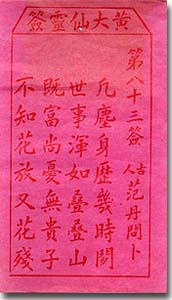 黃大仙靈簽
第八十三簽
古人 范丹問卜
凡塵身歷幾時閒
世事渾如叠叠山
既富尚憂無貴子
不知花放又花殘